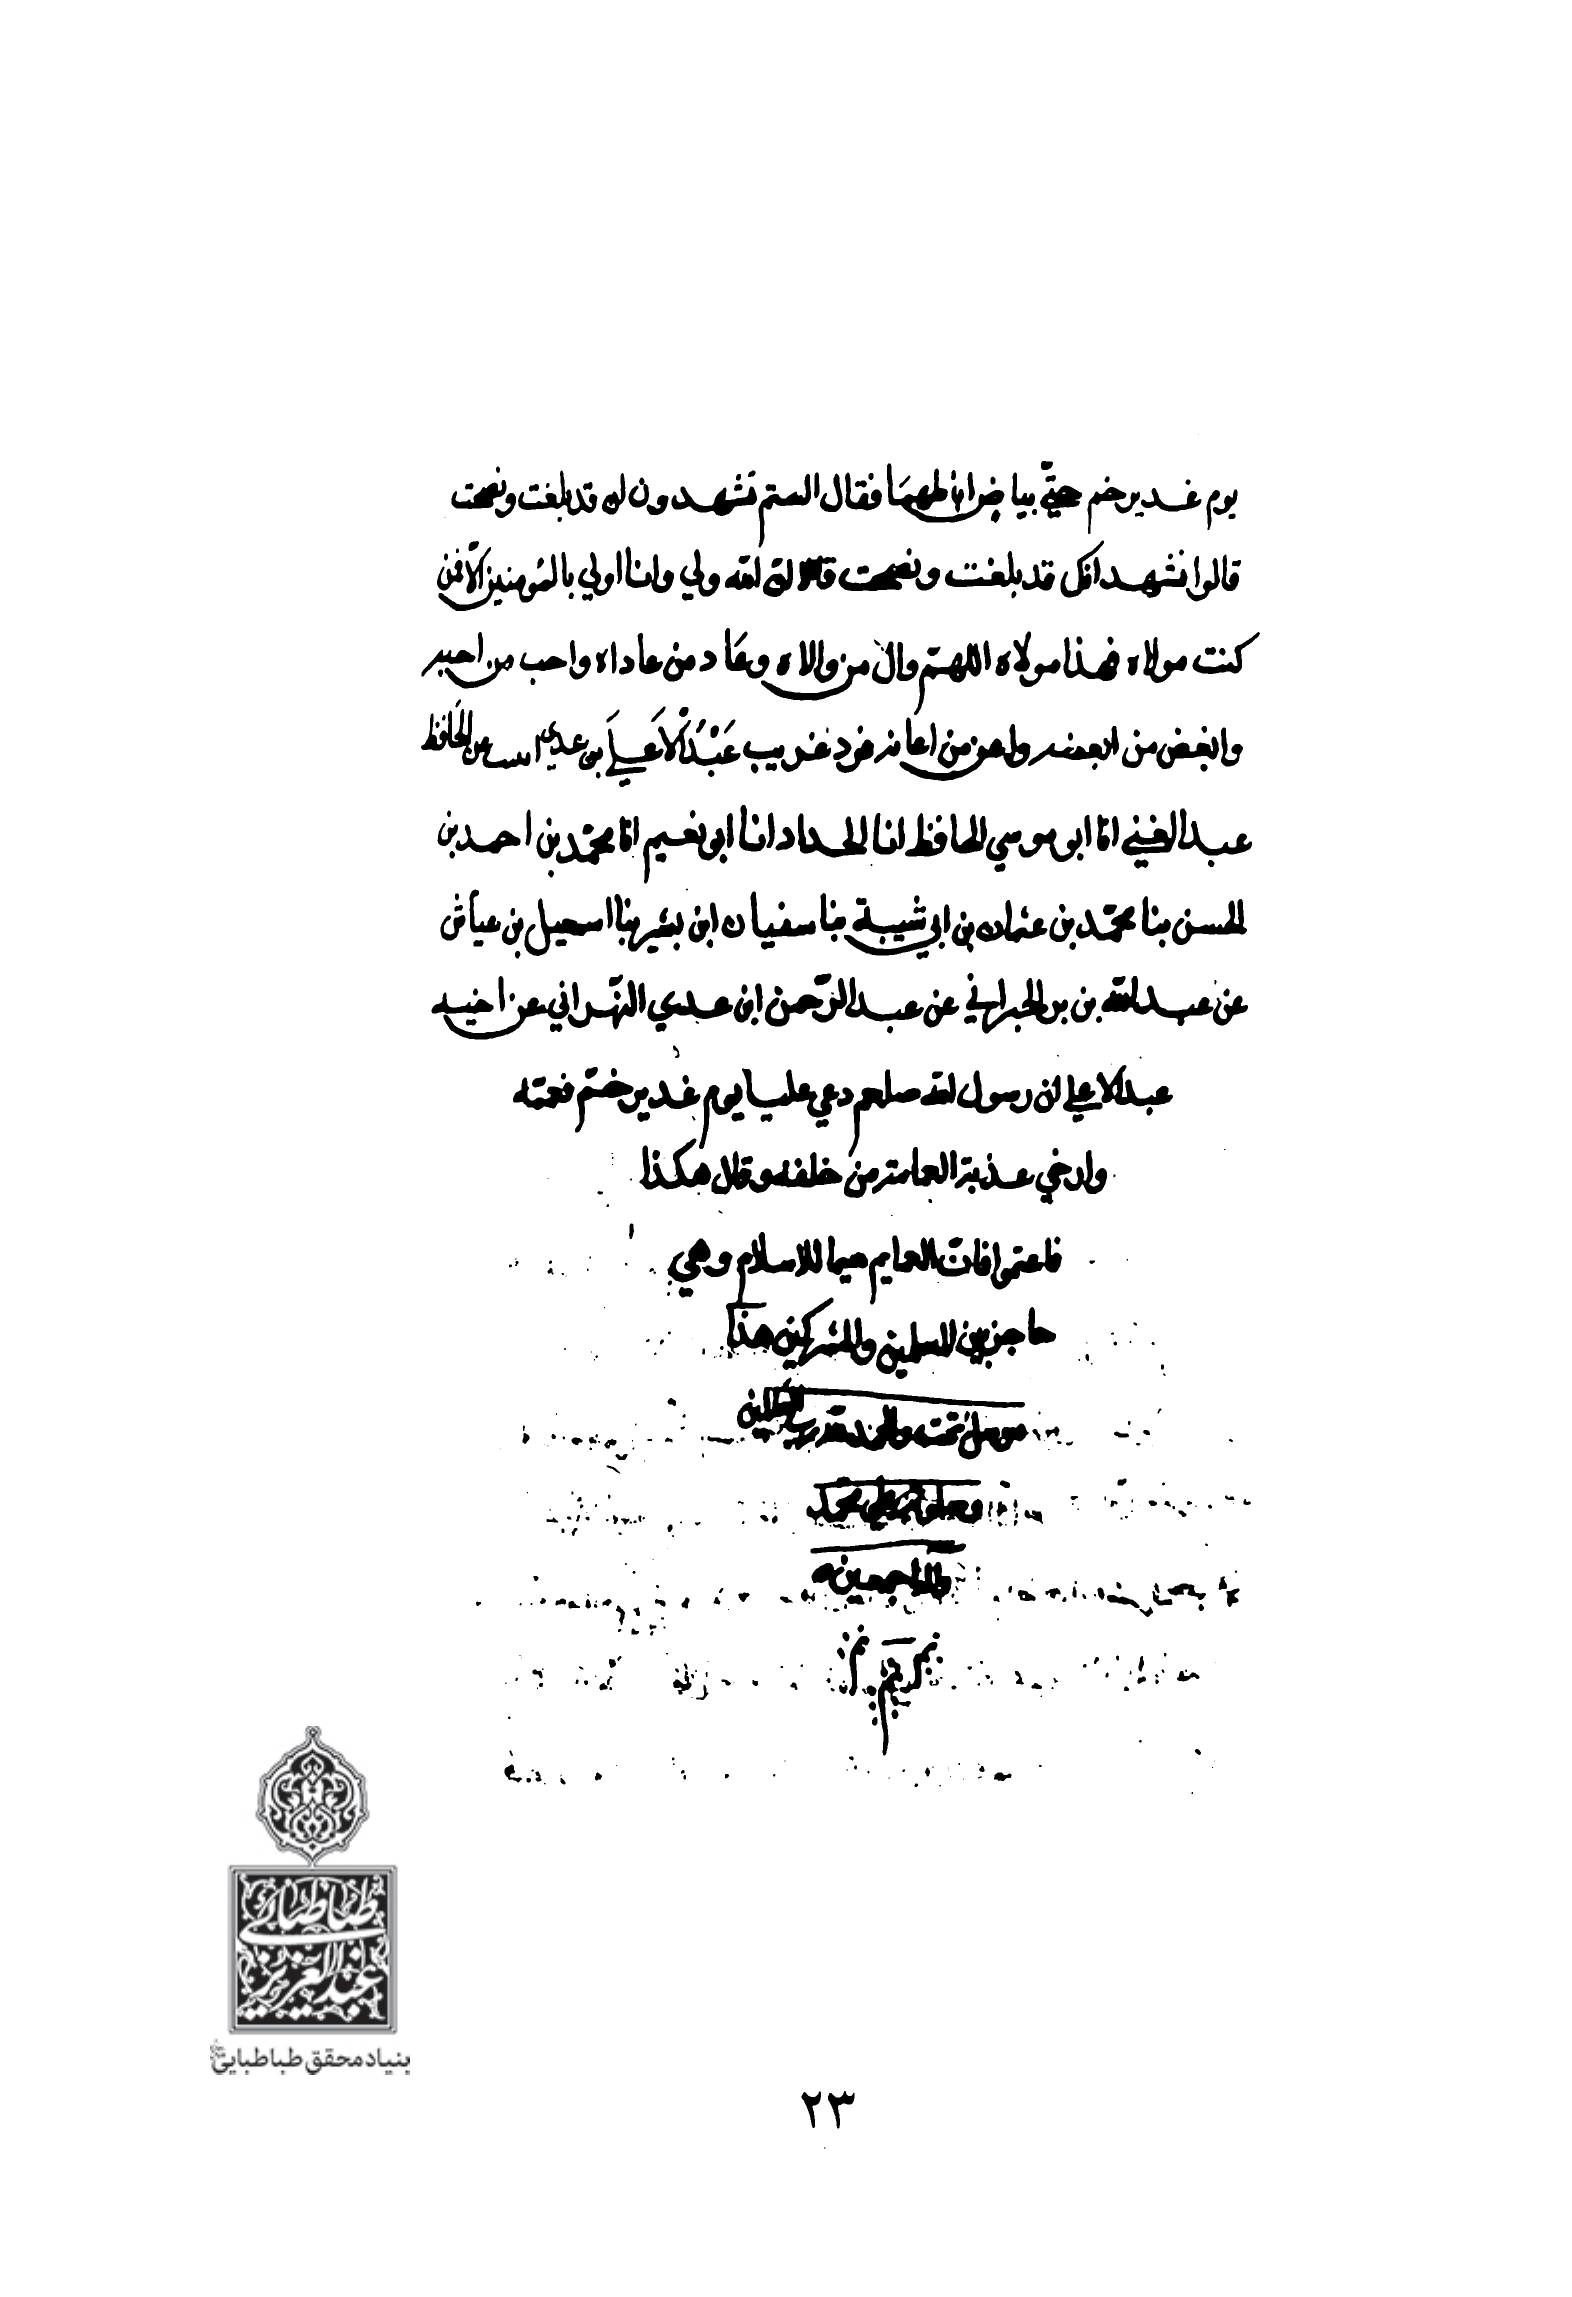 يوم غدير خم حتّى بياض ابطهما فقال الستم تشهدون ان قد بلغت ونصحت
قالوا نشهد انك قد بلغت ونصحت قال انّ الله ولي وانا اولي بالمؤمنين الا فمن
كنت مولاه فهذا مولاه اللهمّ وال من والاه وعَاد من عاداه واحب من احبه
وابغض من ابغضه واعن من اعانه فرد غريب عَبْدُ الْاَعلَي بن عدي الحَافظ
عبد الغني انا ابو موسي الحافظ انا الحداد انا ابو نعيم انا محمّد بن احمد بن
الحسن بنا محمّد بن عثمان بن ابي شيبة بنا سفيان ابن بشير بنا اسمعيل بن عياش
عن عبد الله بن بر الحبراني عن عبد الرّحمن ابن عدي النّهراني عن اخيه
عبد الاعلي ان رسول الله صلعم دعي عليا يوم غدير خمّ فعمّه
وارخي عذبة العمامة من خلفه وقال هكذا
فاعتموا فانّ العمايم سيما للاسلام وهي
حاجز بين المسلمين والمشركين هذا
مرسل تمّت والحمد لله رب العالمين
وصلواته علي محمّد
واله اجمعين
طباطبایی
عبدالعزیز
بنیاد محقق طباطبایی
٢٣